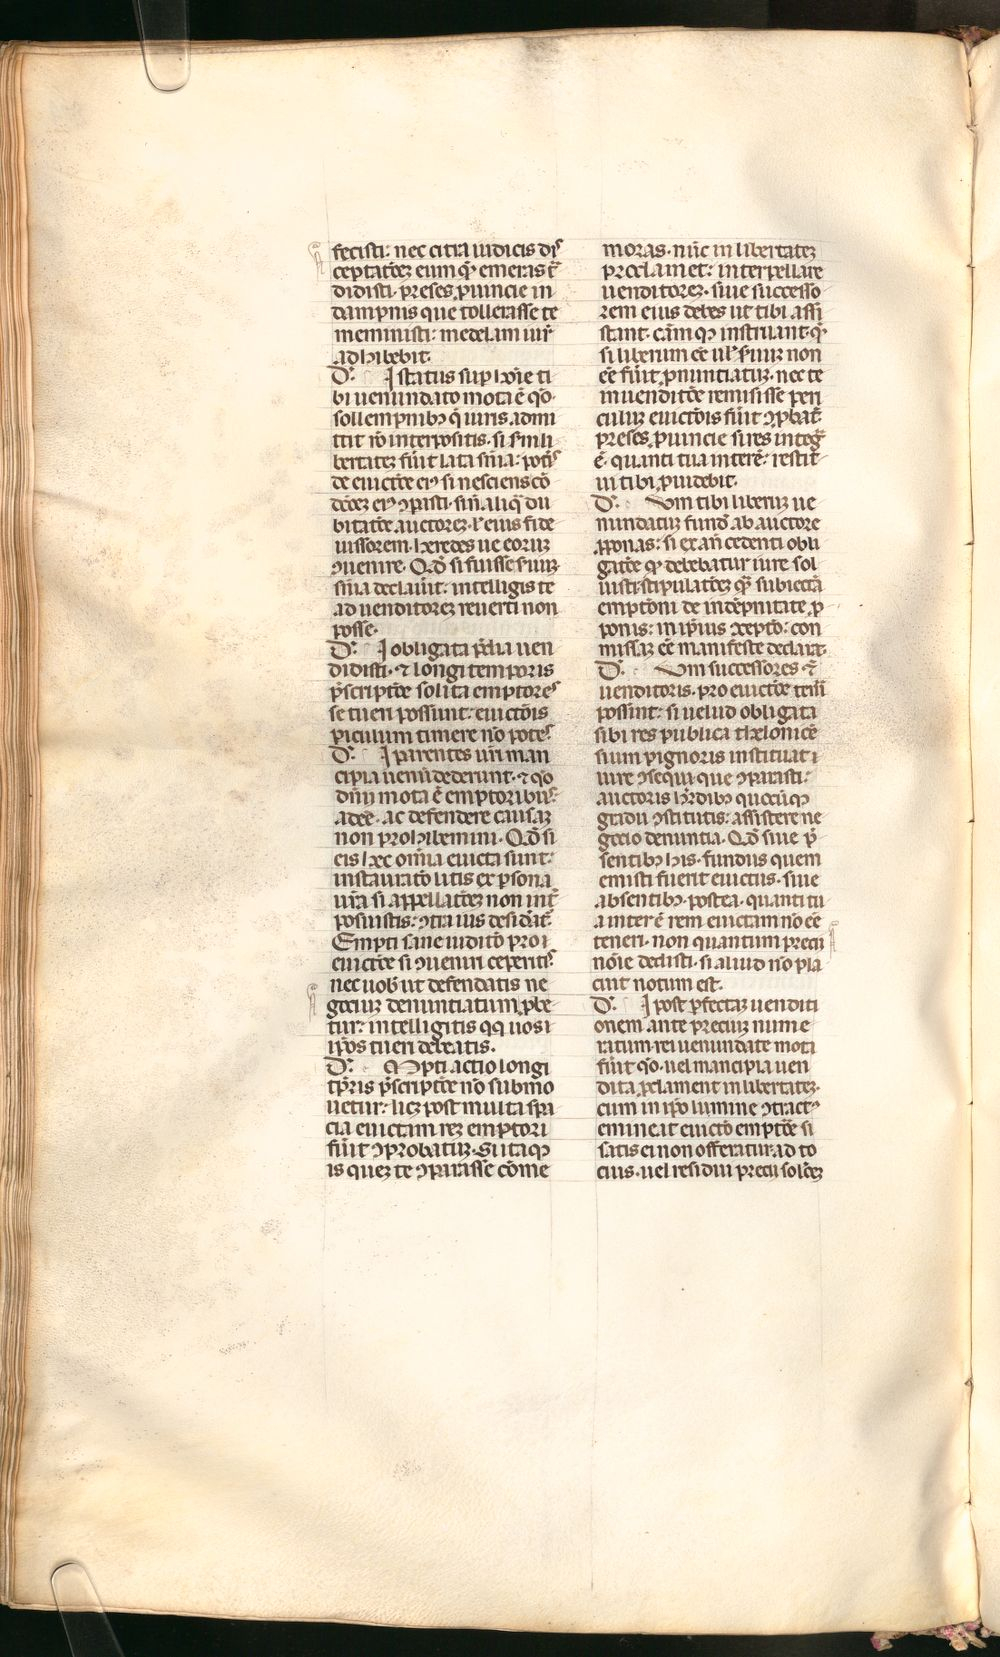 fecisti: nec citra iudicis dis
ceptatōeʒ eum qͥ emeras t̄
didisti. preses ꝓuincie in
dampnis que tollerasse te
meministi: medelam iur̄
adhibebit.
D'. I status suꝑ hoīe ti
bi uenundato mota ē q̄o.
sollempnibʒ q̄ iuris admi
ttit rō interpositis. si s'ī li
bertateʒ fūit lata snīa: potꝭ
de euictōe eiꝰ si nesciens cō
dōeʒ eiꝰ ꝯpasti. sin̄ aliq̄ du
bitatōe auctoreʒ. l' eius fide
iussorem. heredes ue eoruʒ
ꝯuenire. Qd̄ si fuisse s'uuʒ
snīa declaūit: intelligis te
ad uenditoreʒ reuerti non
posse.
D'. I obligata p̄dia uen
didisti. ⁊ longi temporis
p̄scriptōe solita emptores
se tueri possunt: euictōis
ꝑiculum timere nō potes.
D'. I parentes ur̄i man
cipia uenū dederunt. ⁊ q̄o
dn̄ij mota ē emptoribus:
adeē. ac defendere causaʒ
non prohibemini. Qd̄ si
eis hec om̄ia euicta sunt:
instauratō litis ex ꝑsona
ur̄a si appellatōeʒ non int̄
posuistis: ꝯtra ius desid̄at̄.
Empti sane iuditō pro i
euictōe si ꝯueniri ceperitꝭ:
nec uob̄ ut defendatis ne
gotiuʒ denuntiatum ꝓbe
tur: intelligitis qq uos i
ip̄os tueri debeatis.
D'. Mpti actio longi
tp̄ris p̄scriptōe nō submo
uetur: licʒ post multa spa
cia euictam reʒ emptori
fūit ꝯprobatuʒ. Si itaqꝫ
is queʒ te ꝯparasse cōme
moras. nūc in libertateʒ
proclamet: interpellare
uenditoreʒ. siue successo
rem eius debes ut tibi assi
stant. cām qꝫ instruant. qͥ
si liberum eē ul' s'uuʒ non
eē fūit ꝓnuntiatuʒ. nec te
in uenditōe remisisse peri
culuʒ euictōis fūit ꝯꝓbat̄:
preses ꝓuincie si res inteḡ
ē. quanti tua interē: restit̄
ui tibi ꝓuidebit.
D'. Um tibi liberuʒ ue
nundatuʒ fund̄ ab auctore
ꝓponas: si ex an̄cedenti obli
gatōe qͥ debebatur iure sol
uisti. stipulatōeʒ q̄ subiectā
emptōni de indēpnitate ꝓ
ponis: in ip̄ius exeptō: con
missaʒ eē manifeste declarat̄.
D'. Um successores ⁊
uenditoris. pro euictōe teīi
possint: si uelud obligata
sibi res publica thelonicē
sium pignoris instituat i
iure ꝯsequi que ꝯparasti:
auctoris h'dibʒ quocūqꝫ
gradu ꝯstitutis: assistere ne
gocio denuntia. Qd̄ siue p̄
sentibʒ his. fundus quem
emisti fuerit euictus. siue
absentibʒ. postea. quanti tu
a inter ē rem euictam nō eē
teneri. non quantum precij
nōie dedisti. si aliud nō pla
cuit notum est.
D'. I post ꝑfectaʒ uenditi
onem ante preciuʒ nume
ratum. rei uenundate mota
fūit q̄o. uel mancipia uen
dita ꝓclament in libertateʒ.
cum in ip̄o lumine ꝯtractꝰ
emineat euictō emptōe si
satis ei non offeratur: ad to
cius. uel residui precij solcōeʒ